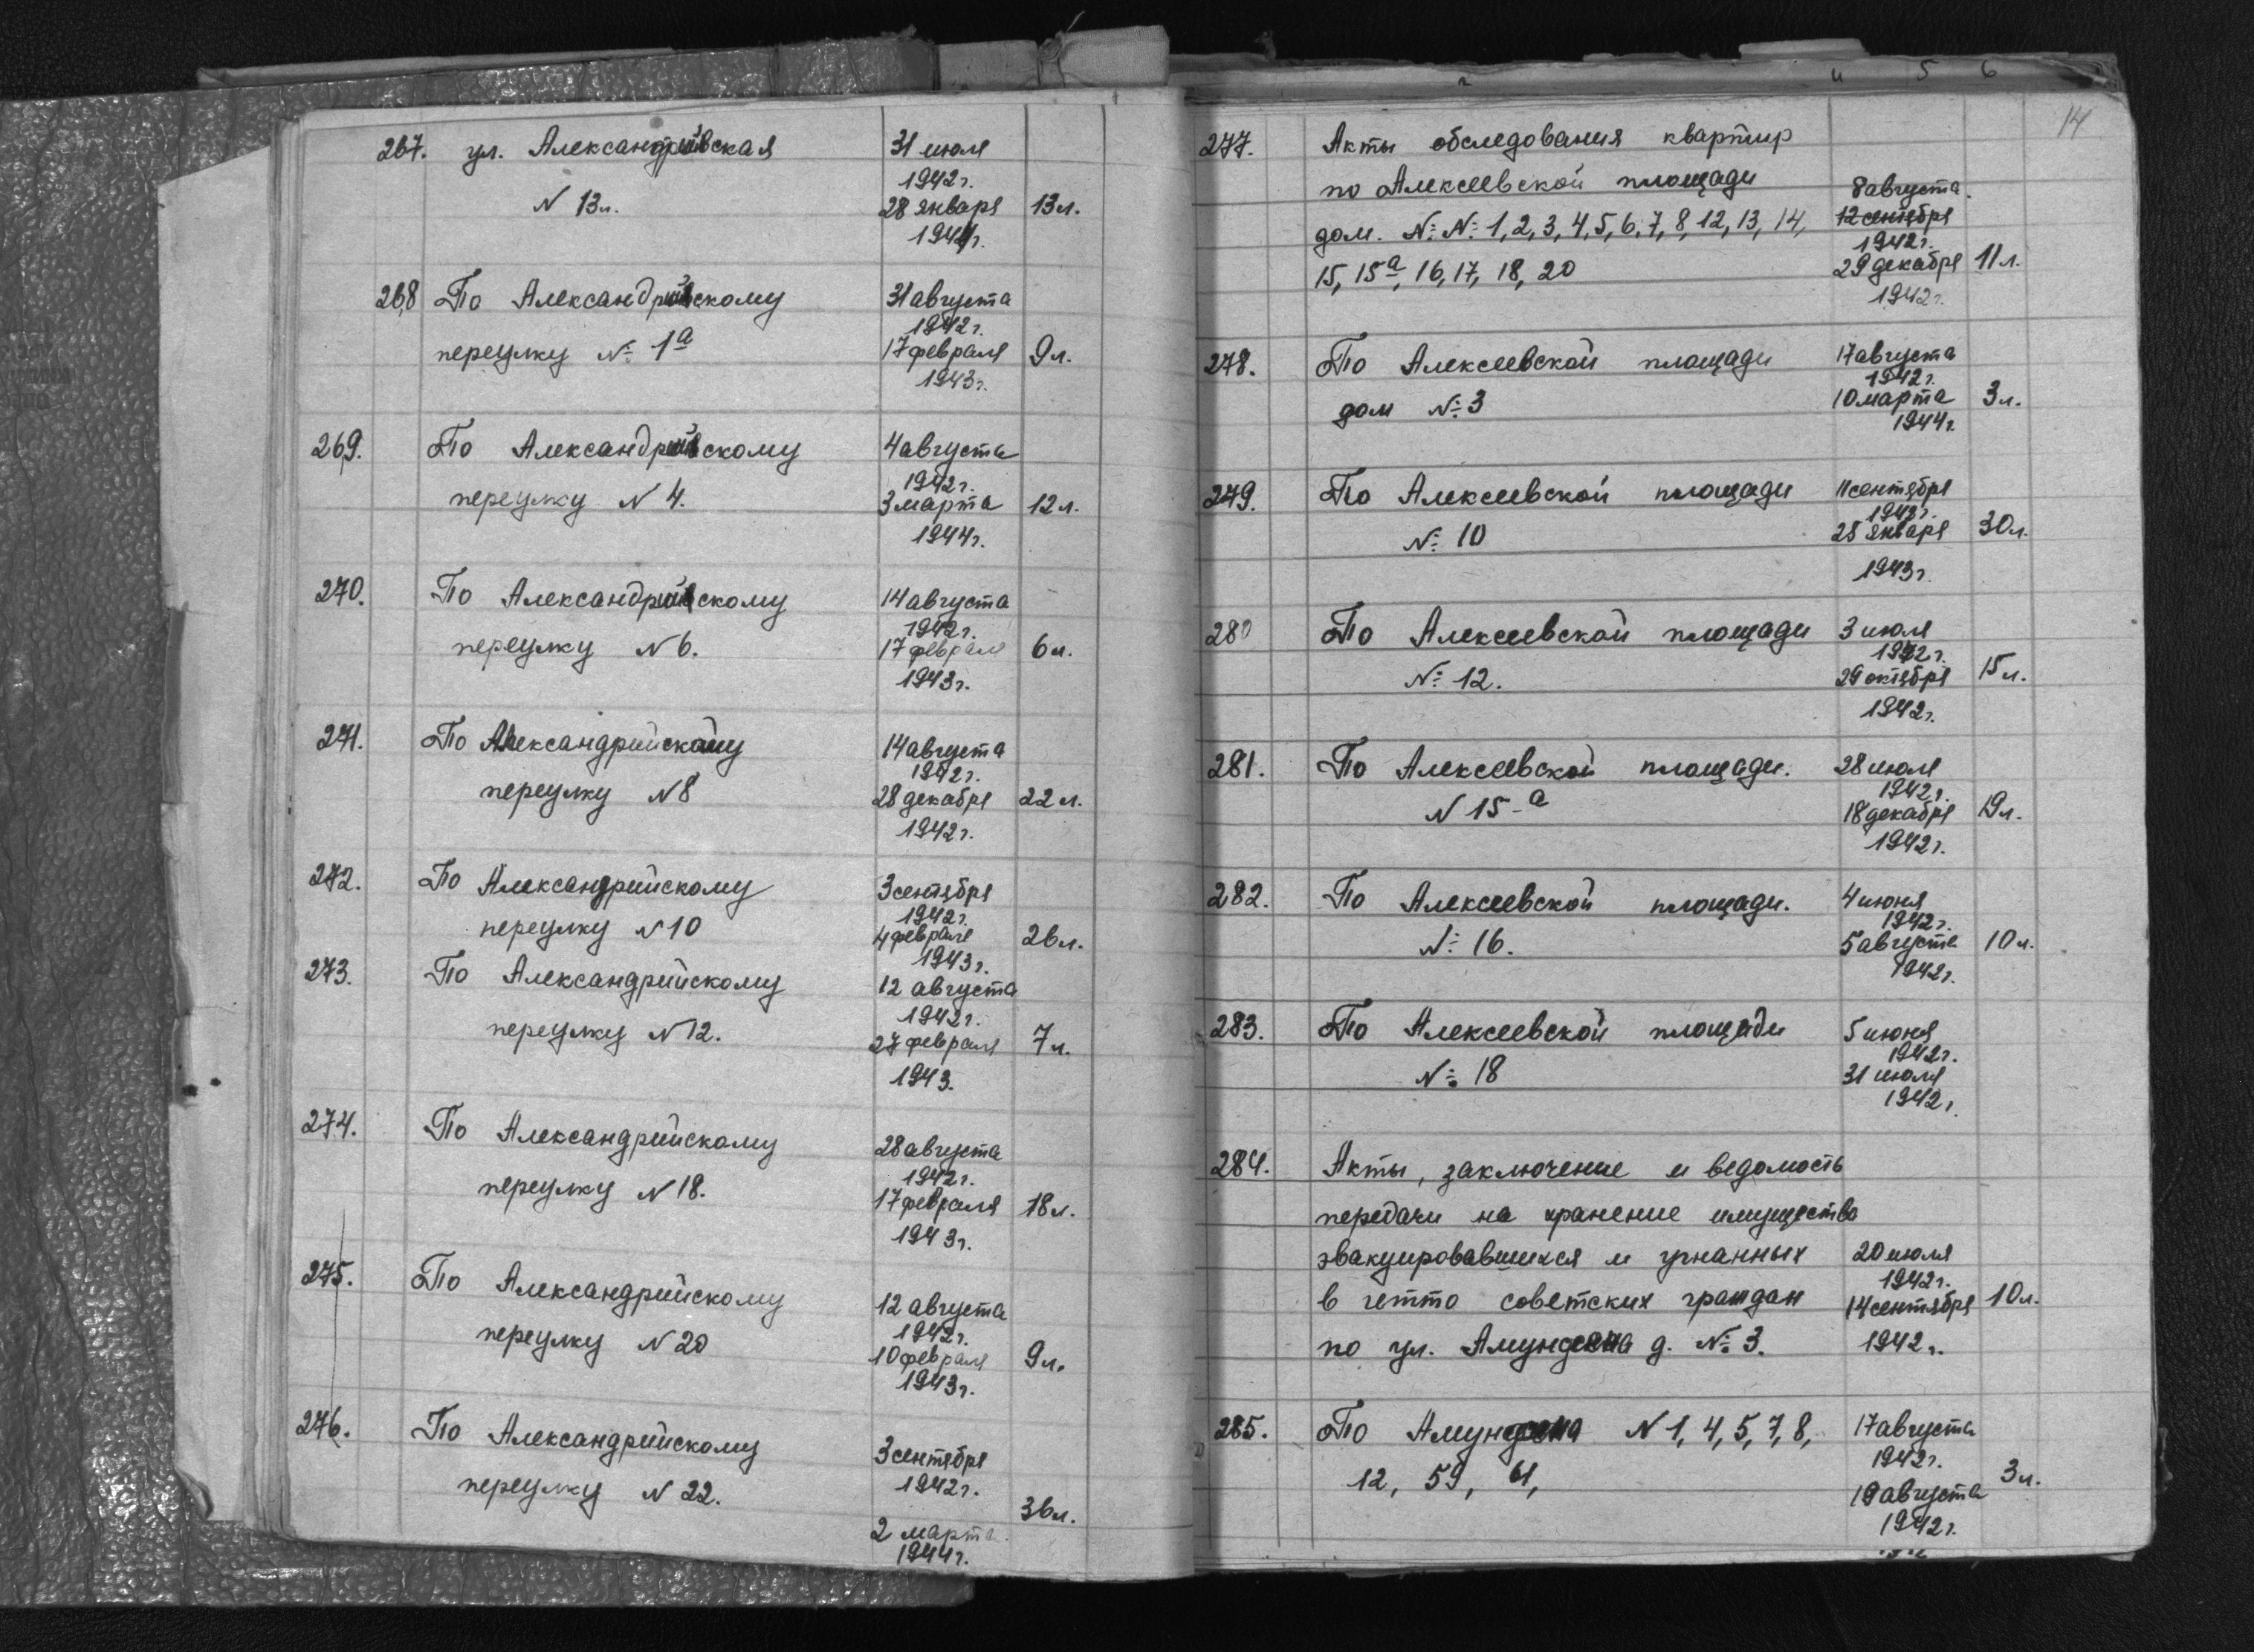 267. ул. Александрийская 31 июля
1942 г.
N 13 л. 28 января 13 л.
1944 г.
268 По Александрийскому 31 августа
1942 г.
переулку №: 1а 17 февраля 9 л.
1943 г.
269. По Александрийскому 4 августа
1942 г.
переулку N 4. 3 марта 12 л.
1944 г.
270. По Александрийскому 14 августа
1942 г.
переулку N 6. 17 февраля 6 л.
1943 г.
271. По Александрийскому 14 августа
1942 г.
переулку N 8 28 декабря 22 л.
1942 г.
272. По Александрийскому 3 сентября
1942 г.
переулку N 10 4 февраля 26 л.
1943 г.
273. По Александрийскому 12 августа
1942 г.
переулку N 12. 27 февраля 7 л.
1943.
274. По Александрийскому 28 августа
1942 г.
переулку N 18. 17 февраля 18 л.
1943 г.
275. По Александрийскому 12 августа
1942 г.
переулку N 20 10 февраля 9 л.
1943 г.
276. По Александрийскому 3 сентября
1942 г.
переулку N 22. 36 л.
2 марта
1944 г.
и 5 6
14
277. Акты обследования квартир
по Алексеевской площади 8 августа
дом. №: №: 1, 2, 3, 4, 5, 6, 7, 8, 12, 13, 14, 12 сентября
1942 г.
15, 15а, 16, 17, 18, 20 29 декабря 11 л.
1942 г.
278. По Алексеевской площади 17 августа
1942 г.
дом №: 3 10 марта 3 л.
1944 г.
279. По Алексеевской площади 11 сентября
1942 г.
№: 10 25 января 30 л.
1943 г.
280 По Алексеевской площади 3 июля
1942 г.
№: 12. 29 октября 15 л.
1942 г.
281. По Алексеевской площади. 28 июля
1942 г.
N 15-а 18 декабря 19 л.
1942 г.
282. По Алексеевской площади. 4 июня
1942 г.
№: 16. 5 августа 10 л.
1942 г.
283. По Алексеевской площади 5 июня
1942 г.
№: 18 31 июля
1942 г.
284. Акты, заключение и ведомость
передачи на хранение имущества
эвакуировавшихся и угнанных 20 июля
1942 г.
в гетто советских граждан 14 сентября 10 л.
по ул. Амундсена д. №: 3. 1942 г.
285. По Амундсена N 1, 4, 5, 7, 8, 17 августа
1942 г.
12, 59, 61, 3 л.
19 августа
1942 г.